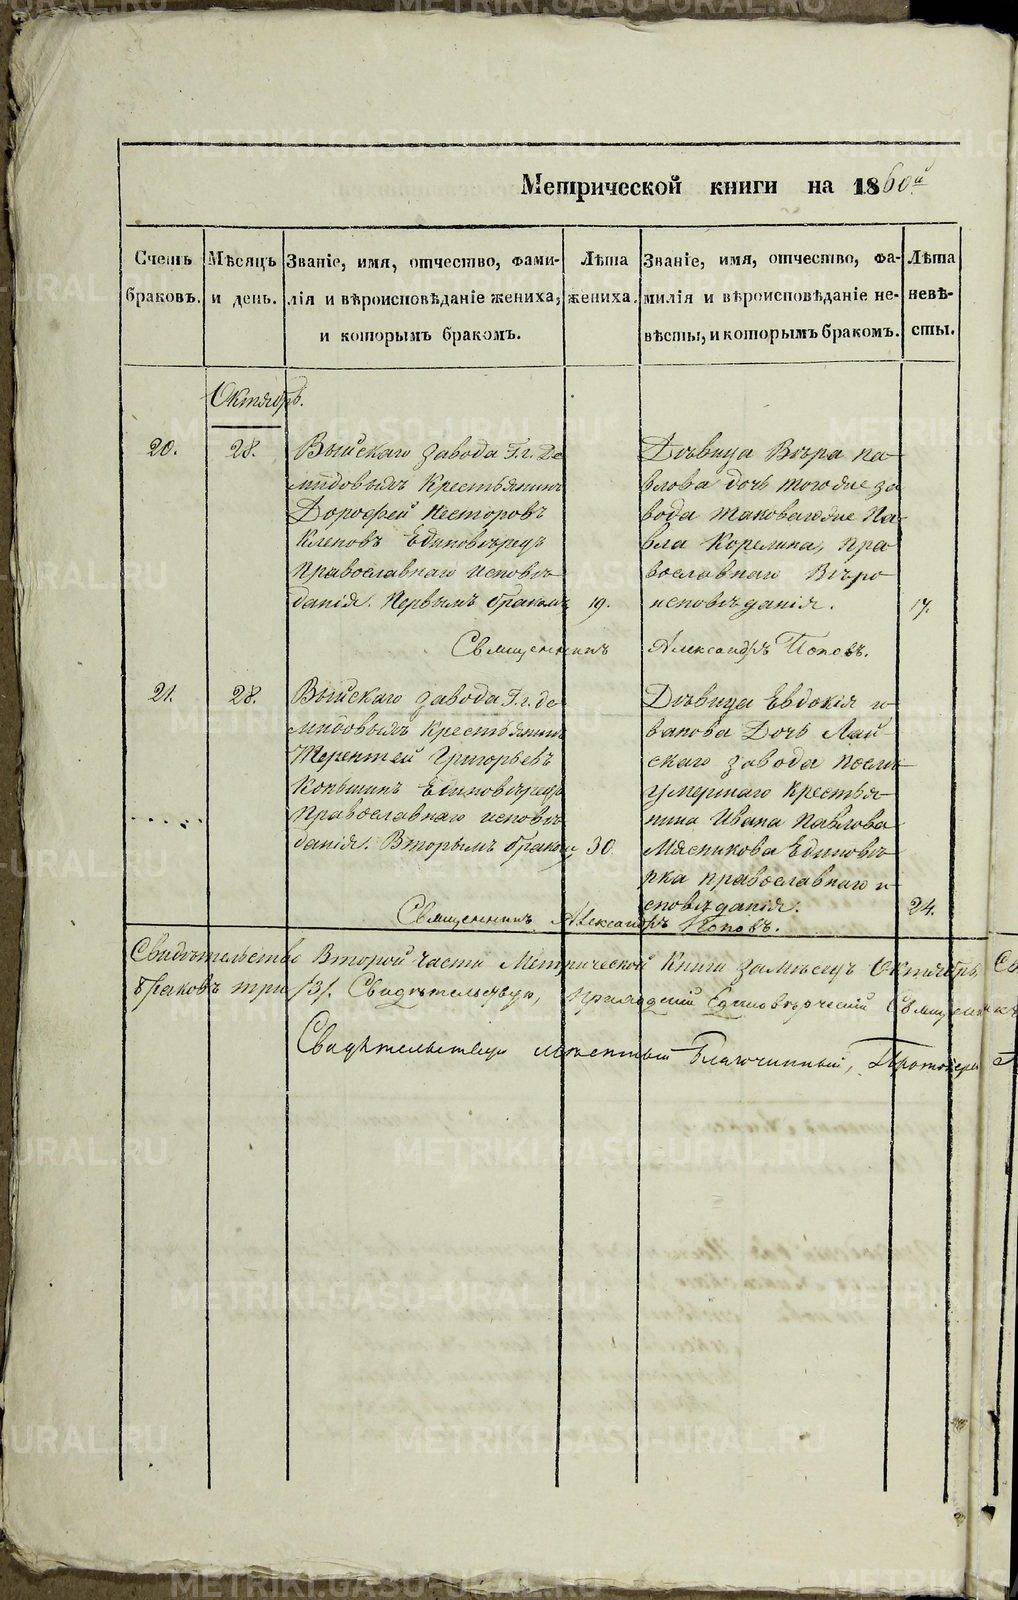 Метрической книги на 1860й
Счетъ браковъ.
Мѣсяцъ и день.
Званіе, имя, отчество, фами-
лія и вѣроисповѣданіе жениха,
и которымъ бракомъ.
Лѣта жениха.
Званіе, имя, отчество, фа-
милія и вѣроисповѣданіе не-
вѣсты, и которымъ бракомъ.
Лѣта невѣ-
сты.
Октябрь.
20.
28.
Выйскаго завода Г.г. Де
мидовыхъ Крестьянинъ
Дорофей Несторовъ
Клеповъ Единовѣрецъ
Православнаго исповѣ-
данія. Первымъ бракомъ
19.
Дѣвица Вѣра Па-
влова дочь тогоже за
вода таковагоже Па-
вла Корелина, Пра
вославнаго Вѣро
исповѣданія.
17.
Священникъ Александръ Поповъ.
21.
28.
Выйскаго завода Г.г. Де
мидовыхъ Крестьянинъ
Терентей Григорьевъ
Копышинъ Единовѣрецъ
Православнаго исповѣ
данія. Вторымъ бракомъ
30
Дѣвица Евдокія И
ванова Дочь Лай
скаго завода послѣ
умершаго Крестья
нина Ивана Павлова
Мясникова Единовѣ
рка православнаго и
сповѣданія.
24.
Священникъ Александръ Поповъ.
Свидѣтельство Второй части Метрической Книги за мѣсецъ Октябрь
браковъ три /3/. Свидѣтельствую, Приходскій Единовѣрческій Священникъ
Свидѣтельствую мѣстный Благочинный, Протоіерей
METRIKI.GASO-URAL.RU